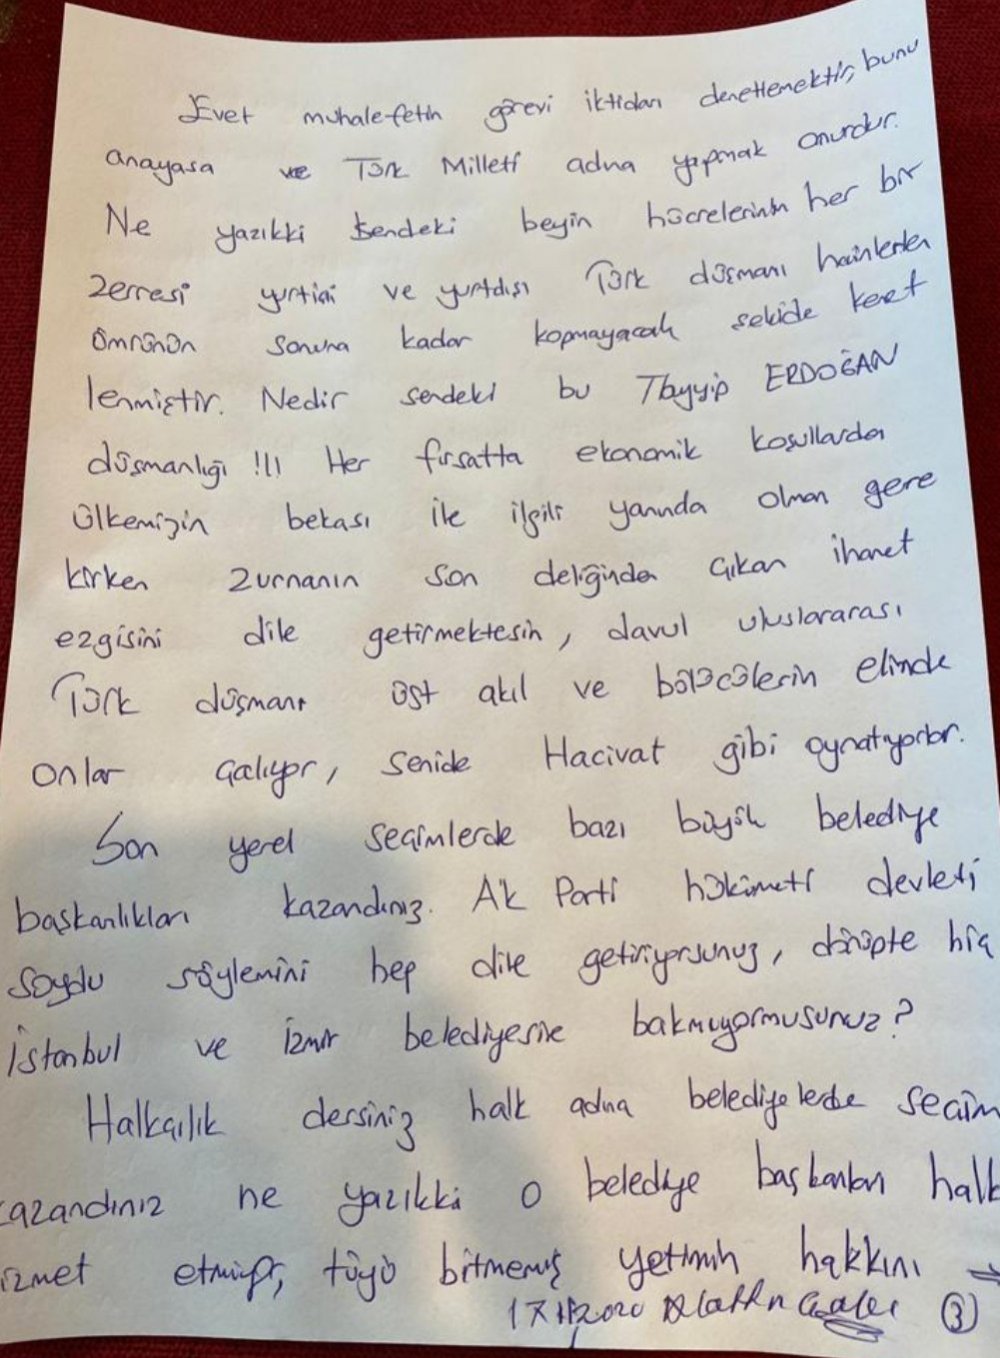 Evet muhalefetin görevi iktidarı denetlemektir, bunu
anayasa ve Türk Milleti adına yapmak onurdur.
Ne yazıkki sendeki beyin hücrelerinin her bir
zerresi yurtiçi ve yurtdışı Türk düşmanı hainlerden
ömrünün sonuna kadar kopmayacak şekide kenet
lenmiştir. Nedir sendeki bu Tayyip ERDOĞAN
düşmanlığı !!! Her fırsatta ekonomik koşullardan
Ülkemizin bekası ile ilgili yanında olman gere
kirken zurnanın son deliğinden çıkan ihanet
ezgisini dile getirmektesin, davul uluslararası
Türk düşmanı üst akıl ve bölücülerin elinde
onlar çalıyor, senide Hacivat gibi oynatıyorlar.
Son yerel seçimlerde bazı büyük belediye
başkanlıkları kazandınız. AK Parti hükümeti devleti
soydu söylemini hep dile getiriyorsunuz, dönüpte hiç
İstanbul ve İzmir belediyesine bakmıyormusunuz?
Halkçılık dersiniz halk adına belediyelerde seçim
kazandınız ne yazıkki o belediye başkanları halka
izmet etmiyor, tüyü bitmemiş yetimin hakkını →
2020 Alattin Çakıcı 3